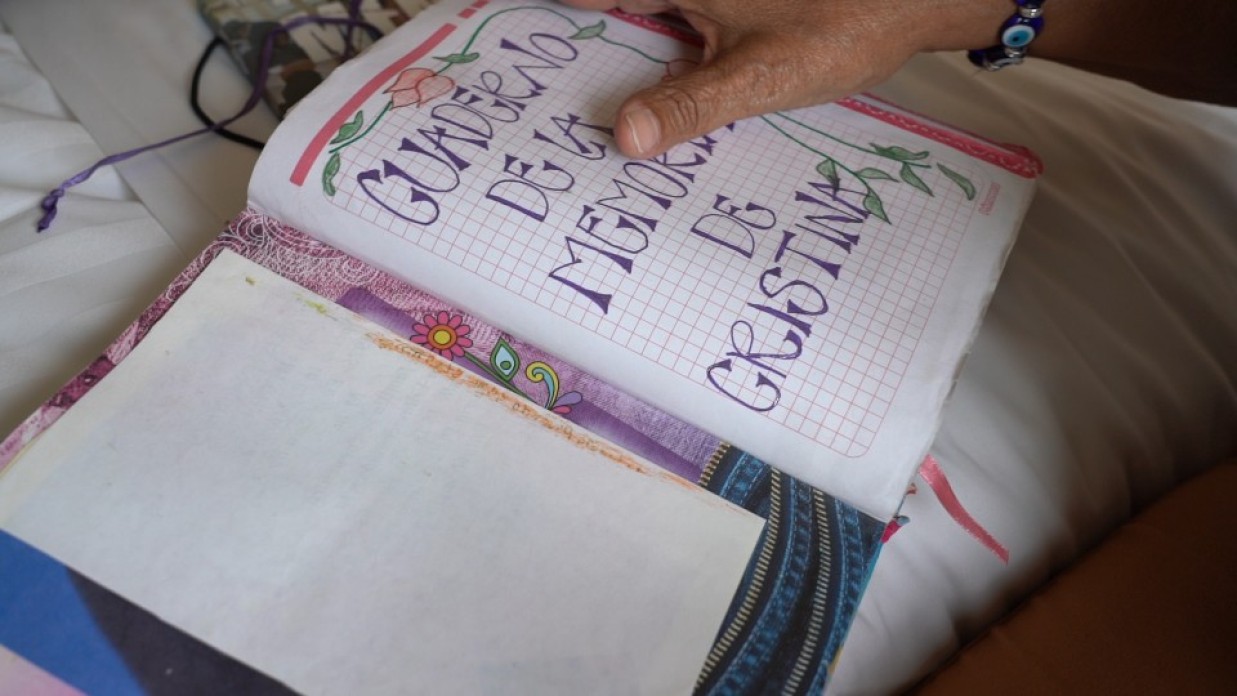 CUADERNO
DE LA
MEMORIA
DE
CRISTINA